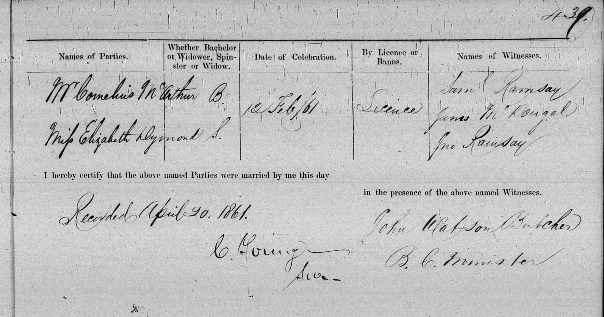 439.
Names of Parties. Whether Bachelor or Widower, Spinster or Widow. Date of Celebration. By Licence or Banns. Names of Witnesses.
Mr Cornelius McArthur B. Saml Ramsay
12 Feby/61 Licence James McDougal
Miss Elizabeth Dymond S. Jno Ramsay
I hereby certify that the above named Parties were married by me this day
in the presence of the above named Witnesses.
Recorded April 20. 1861.
John Watson Butcher
C. Young
B. C. Minister